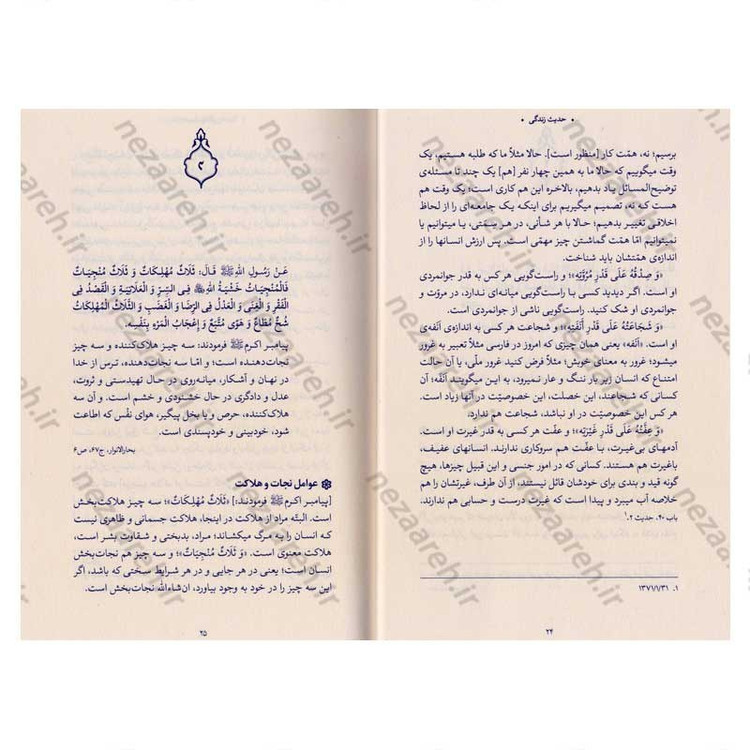 • حدیث زندگی •
برسیم؛ نه، همّت کار [منظور است]. حالا مثلاً ما که طلبه هستیم، یک
وقت میگوییم که حالا ما به همین چهار نفر [هم] یک چند تا مسئله‌ی
توضیح‌المسائل یاد بدهیم، بالاخره این هم کاری است؛ یک وقت هم
هست که نه، تصمیم میگیریم برای اینکه یک جامعه‌ای را از لحاظ
اخلاقی تغییر بدهیم؛ حالا با هر شأنی، در هر سمتی، یا میتوانیم یا
نمیتوانیم امّا همّت گماشتن چیز مهمّی است. پس ارزش انسانها را از
اندازه‌ی همّتشان باید شناخت.
«وَ صِدقُهُ عَلَى قَدرِ مُرُوَّتِهِ»؛ و راست‌گویی هر کس به قدر جوانمردی
او است. اگر دیدید کسی با راست‌گویی میانه‌ای ندارد، در مروّت و
جوانمردی او شک کنید. راست‌گویی ناشی از جوانمردی است.
«وَ شَجاعَتُهُ عَلَى قَدرِ أَنَفَتِهِ»؛ و شجاعت هر کسی به اندازه‌ی آنَفه‌ی
او است. «آنَفه» یعنی همان چیزی که امروز در فارسی مثلاً تعبیر به غرور
میشود؛ غرور به معنای خوبش؛ مثلاً فرض کنید غرور ملّی، یا آن حالت
امتناع که انسان زیر بار ننگ و عار نمیرود، به این میگویند «آنَفه». آن
کسانی که شجاعند، این خصلت، این خصوصیّت در آنها زیاد است.
هر کس این خصوصیّت در او نباشد، شجاعت هم ندارد.
«وَ عِفَّتُهُ عَلَى قَدرِ غَيرَتِهِ»؛ و عفّت هر کسی به قدر غیرت او است.
آدمهای بی‌غیرت، با عفّت هم سروکاری ندارند. انسانهای عفیف،
باغیرت هم هستند. کسانی که در امور جنسی و از این قبیل چیزها، هیچ
گونه قید و بندی برای خودشان قائل نیستند، از آن طرف، غیرتشان را هم
خلاصه آب میبرد و پیدا است که غیرت درست و حسابی هم ندارند.
باب ۴۰، حدیث ۲.¹
۱. ۱۳۷۱/۱/۳۱
۲۴
۲
عَنْ رَسُولِ اللهِ ﷺ قَالَ: ثَلَاثٌ مُهْلِكَاتٌ وَ ثَلَاثٌ مُنْجِيَاتٌ
فَالْمُنْجِيَاتُ خَشْيَةُ اللهِ ﷻ فِي السِّرِّ وَ الْعَلَانِيَةِ وَ الْقَصْدُ فِي
الْفَقْرِ وَ الْغِنَى وَ الْعَدْلُ فِي الرِّضَا وَ الْغَضَبِ وَ الثَّلَاثُ الْمُهْلِكَاتُ
شُحٌّ مُطَاعٌ وَ هَوًى مُتَّبَعٌ وَ إِعْجَابُ الْمَرْءِ بِنَفْسِهِ.
پیامبر اکرم ﷺ فرمودند: سه چیز هلاک‌کننده و سه چیز
نجات‌دهنده است؛ و امّا سه نجات‌دهنده، ترس از خدا
در نهان و آشکار، میانه‌روی در حال تهیدستی و ثروت،
عدل و دادگری در حال خشنودی و خشم است، و آن سه
هلاک‌کننده، حرص و یا بخل پیگیر، هوای نفْس که اطاعت
شود، خودبینی و خودپسندی است.
بحارالانوار، ج۶۷، ص۶
عوامل نجات و هلاکت
[پیامبر اکرم ﷺ فرمودند:] «ثَلَاثٌ مُهْلِكَاتٌ»؛ سه چیز هلاکت‌بخش
است. البتّه مراد از هلاکت در اینجا، هلاکت جسمانی و ظاهری نیست
که انسان را به مرگ میکشاند؛ مراد، بدبختی و شقاوت بشر است،
هلاکت معنوی است. «وَ ثَلَاثٌ مُنْجِيَاتٌ»؛ و سه چیز هم نجات‌بخش
انسان است؛ یعنی در هر جایی و در هر شرایط سختی که باشد، اگر
این سه چیز را در خود به وجود بیاورد، ان‌شاءالله نجات‌بخش است.
۲۵
nezaareh.ir